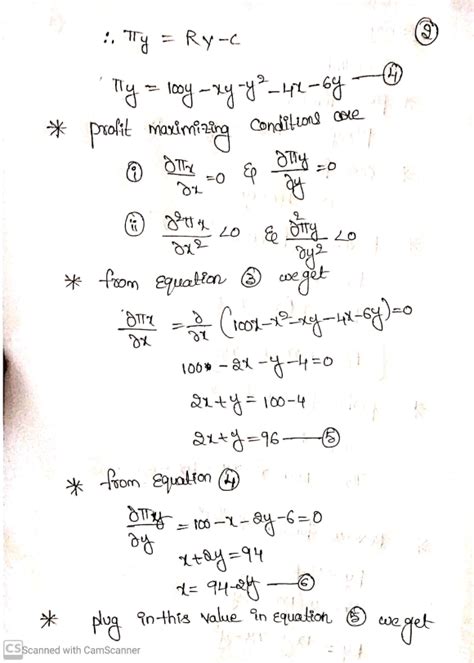 ②
∴ πy = Ry - C
πy = 100y - xy - y² - 4x - 6y — ④
* profit maximizing conditions are
① ∂πx/∂x = 0 & ∂πy/∂y = 0
ⅱ ∂²πx/∂x² < 0 & ∂²πy/∂y² < 0
* from equation ③ we get
∂πx/∂x = ∂/∂x (100x - x² - xy - 4x - 6y) = 0
100 - 2x - y - 4 = 0
2x + y = 100 - 4
2x + y = 96 — ⑤
* from equation ④
∂πy/∂y = 100 - x - 2y - 6 = 0
x + 2y = 94
x = 94 - 2y — ⑥
* plug in this value in equation ⑤ we get
CS Scanned with CamScanner